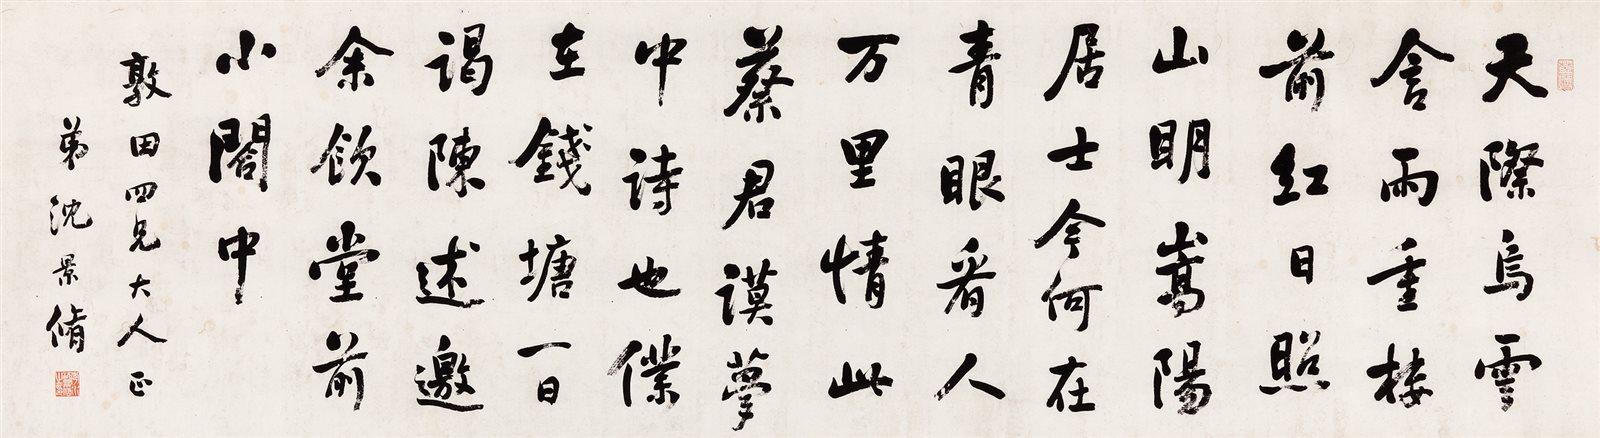 天際烏雲
含雨重樓
前紅日照
山明嵩陽
居士今何在
青眼看人
万里情此
蔡君謨夢
中詩也僕
在錢塘一日
謁陳述邀
余飲堂前
小閣中
敦田四兄大人正
弟沈景脩